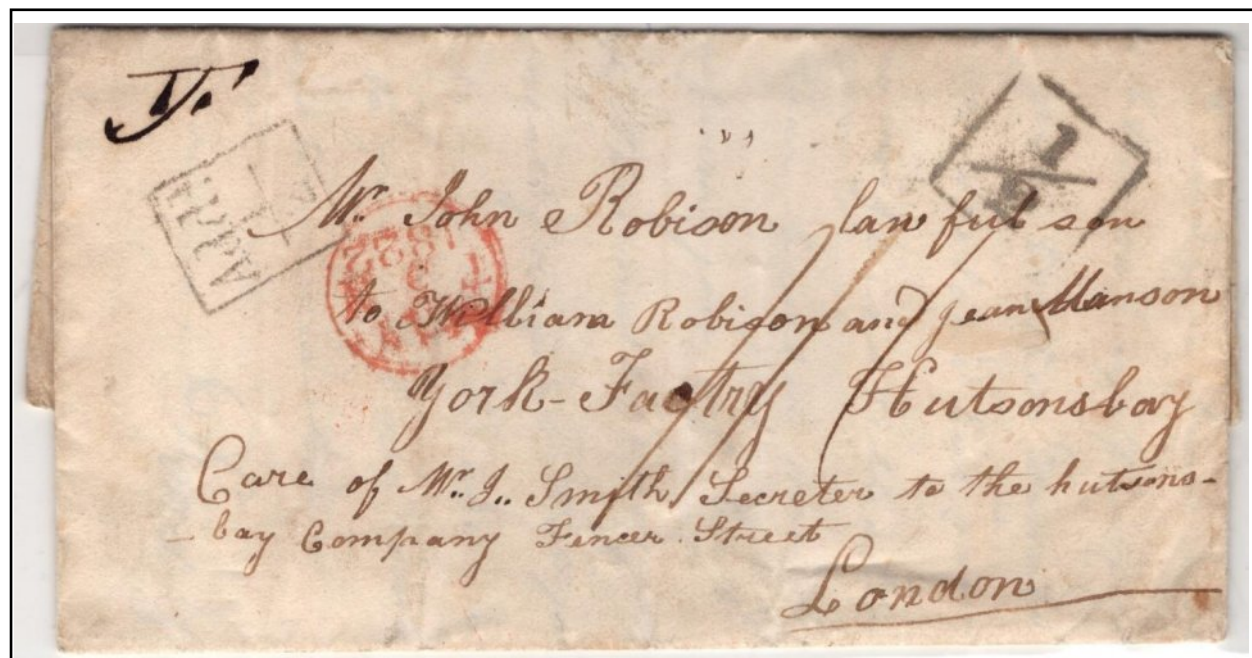 1/2
Mr. John Robison lawful son
to William Robison and Jean Manson
York-Factry Hutsonsbay
Care of Mr. J. Smith Secreter to the hutsons-
-bay Company Fencer Street
London
1822